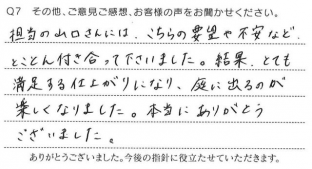 Q7 その他、ご意見ご感想、お客様の声をお聞かせください。
担当の山口さんには、こちらの要望や不安など、
とことん付き合って下さいました。結果、とても
満足する仕上がりになり、庭に出るのが
楽しくなりました。本当にありがとう
ございました。
ありがとうございました。今後の指針に役立たせていただきます。